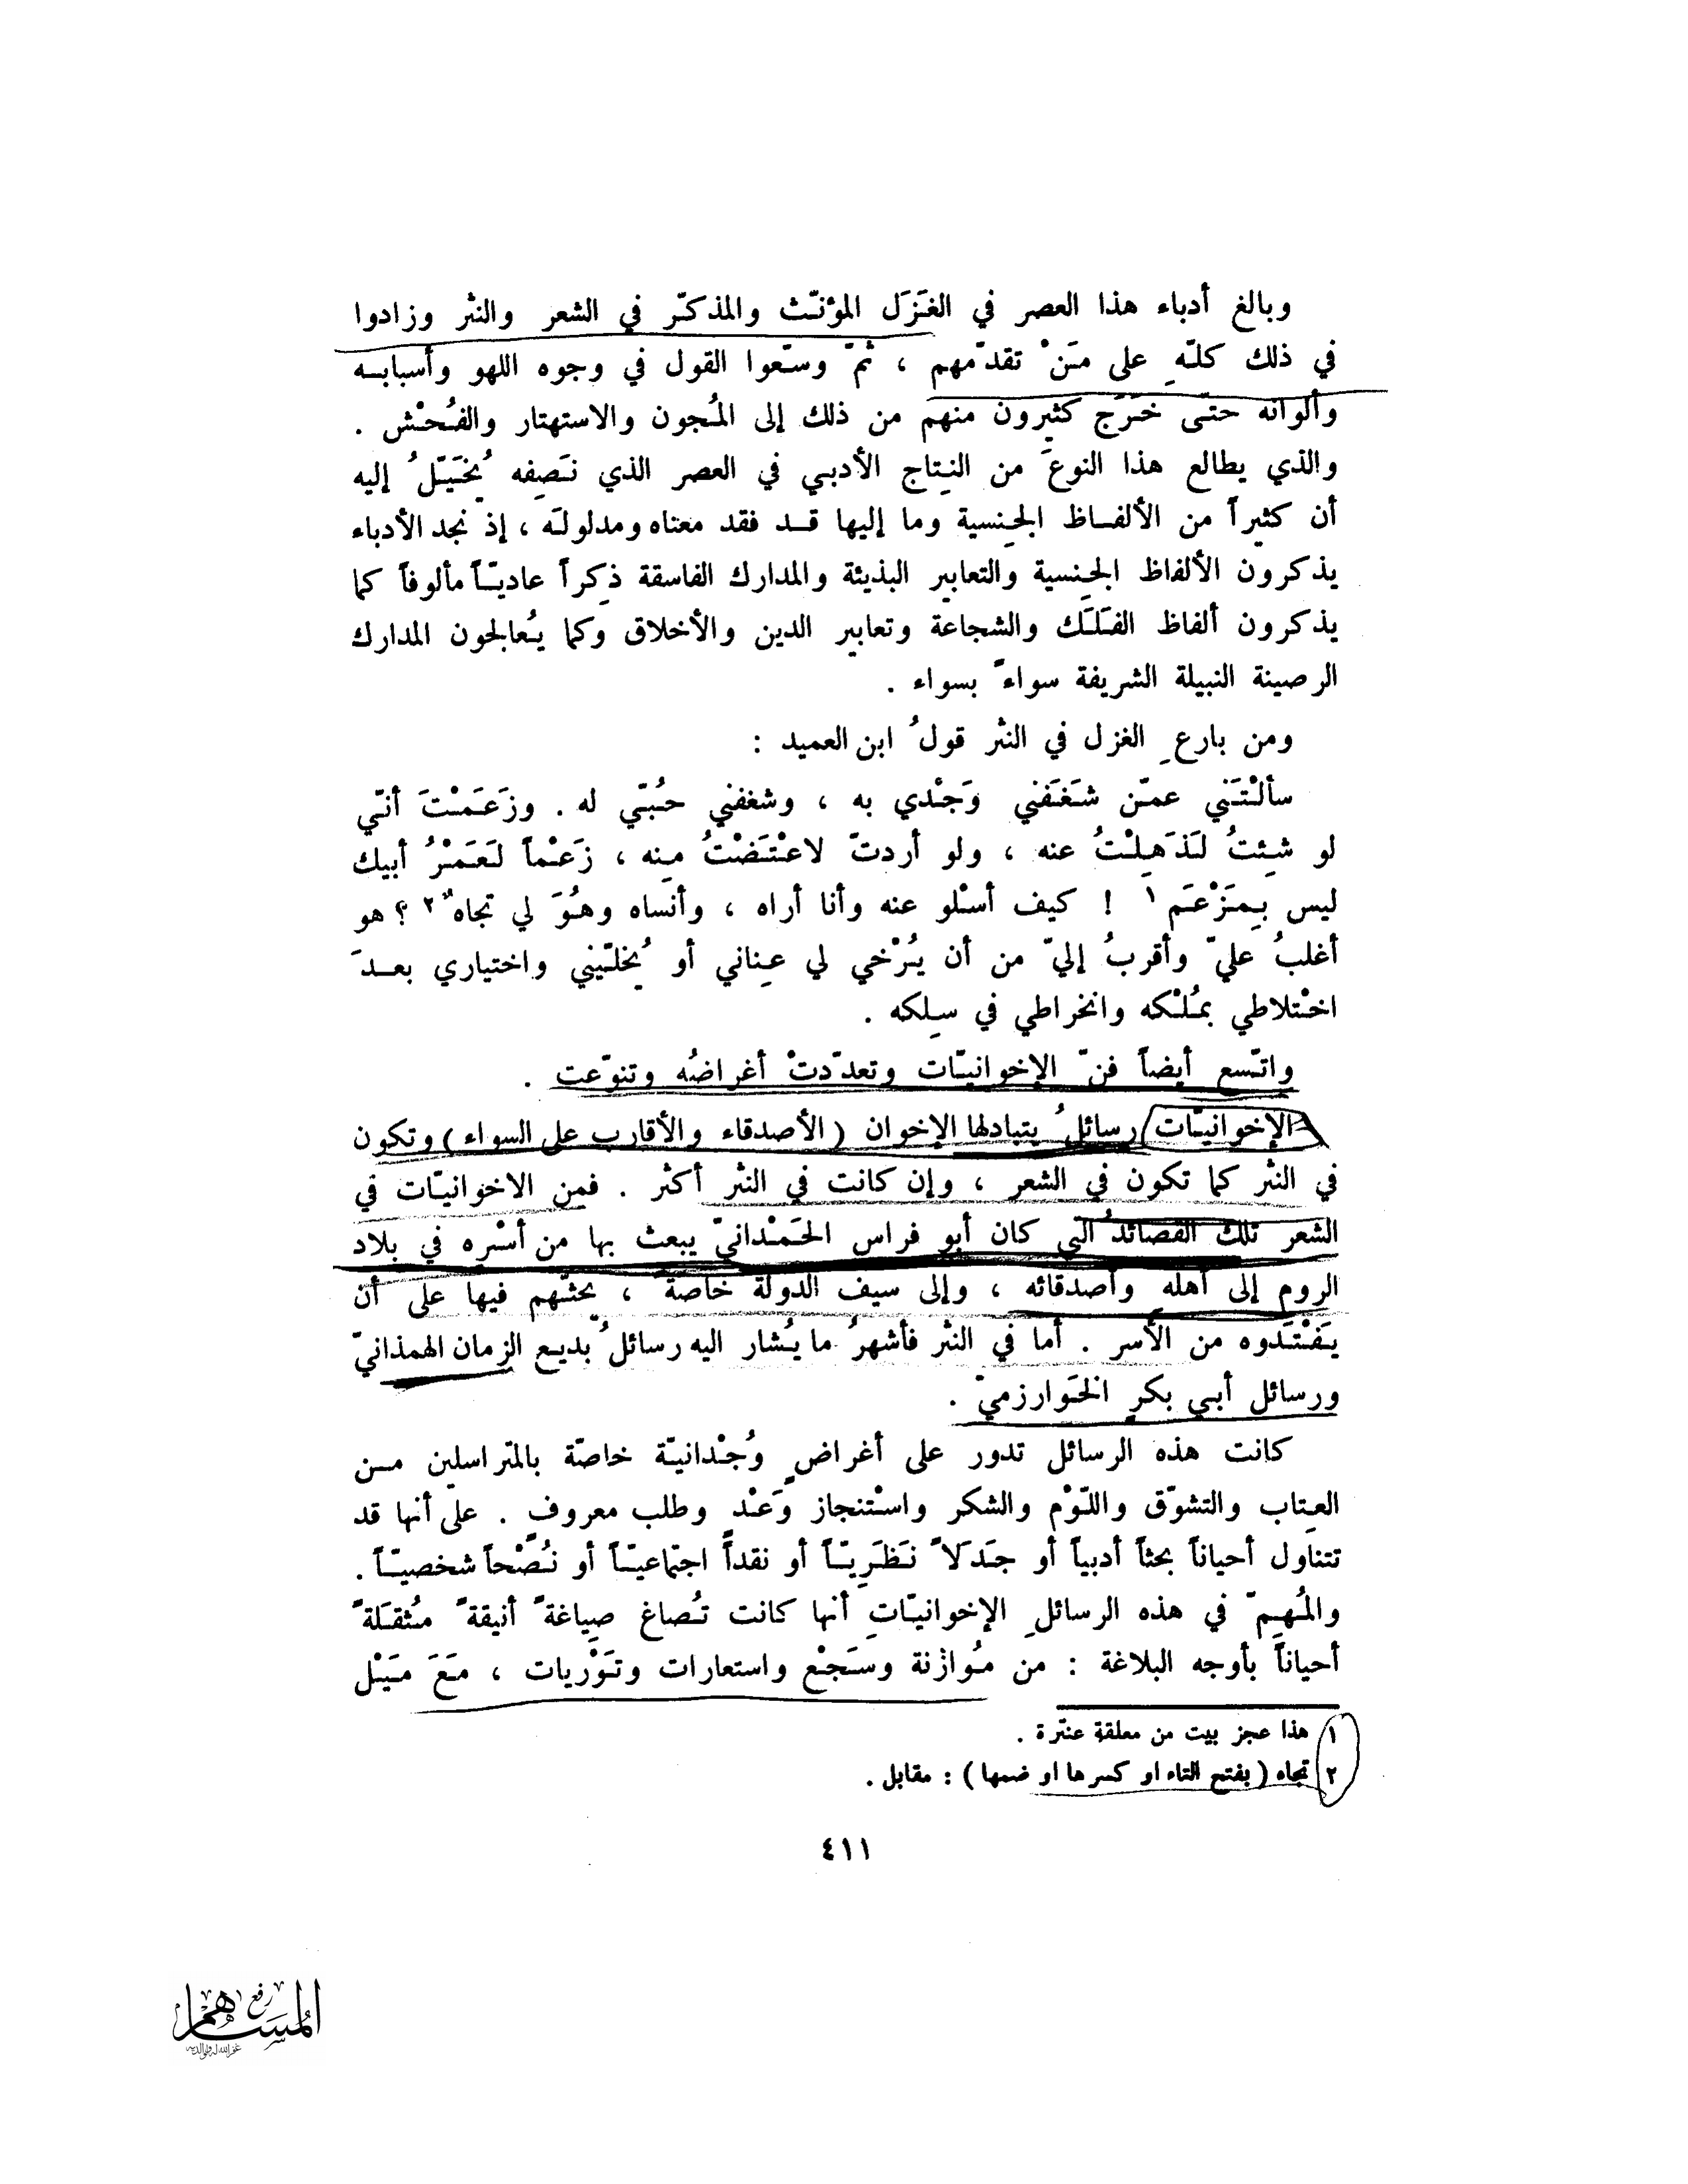 وبالغ أدباء هذا العصر في الغَزَل المؤنّث والمذكّر في الشعر والنثر وزادوا
في ذلك كلّهِ على مَنْ تقدّمهم ، ثمّ وسّعوا القول في وجوه اللهو وأسبابه
وألوانه حتّى خَرَج كثيرون منهم من ذلك إلى المُجون والاستهتار والفُحْش .
والذي يطالع هذا النوعَ من النِتاج الأدبي في العصر الذي نَصِفه يُخَيّلُ إليه
أن كثيراً من الألفاظ الجِنسية وما إليها قد فقد معناه ومدلولَه ، إذ نجد الأدباء
يذكرون الألفاظ الجِنسية والتعابير البذيئة والمدارك الفاسقة ذِكراً عاديّاً مألوفاً كما
يذكرون ألفاظ الفَلَك والشجاعة وتعابير الدين والأخلاق وكما يُعالجون المدارك
الرصينة النبيلة الشريفة سواءً بسواء .
ومن بارعِ الغزل في النثر قولُ ابن العميد :
سألْتَني عمّن شَغَفَني وَجْدي به ، وشغفني حُبّي له . وزَعَمْتَ أنّي
لو شِئتُ لَذَهِلْتُ عنه ، ولو أردتّ لاعْتَضْتُ مِنه ، زَعْماً لَعَمْرُ أبيك
ليس بِمَزْعَم ١ ! كيف أسْلو عنه وأنا أراه ، وأنساه وهُوَ لي تجاهٌ ٢ ؟ هو
أغلبُ عليّ وأقربُ إليّ من أن يُرْخي لي عِناني أو يُخلّيني واختياري بعدَ
اخْتلاطي بمُلْكه وانخراطي في سِلكه .
واتّسع أيضاً فنّ الإخوانيّات وتعدّدتْ أغراضُه وتنوّعت .
الإخوانيّات رسائلُ يتبادلها الإخوان (الأصدقاء والأقارب على السواء) وتكون
في النثر كما تكون في الشعر ، وإن كانت في النثر أكثر . فمن الاخوانيّات في
الشعر تلك القصائدُ التي كان أبو فراس الحَمْدانيّ يبعث بها من أسْرِه في بلاد
الروم إلى أهله وأصدقائه ، وإلى سيف الدولة خاصّةً ، يحثّهم فيها على أن
يَفْتَدوه من الأسر . أما في النثر فأشهرُ ما يُشار اليه رسائلُ بديع الزمان الهمذانيّ
ورسائل أبي بكرٍ الخَوارزميّ .
كانت هذه الرسائل تدور على أغراضٍ وُجْدانيّة خاصّة بالمتراسلين من
العِتاب والتشوّق واللّوْم والشكر واسْتنجاز وَعْدٍ وطلب معروف . على أنها قد
تتناول أحياناً بحثاً أدبياً أو جَدَلاً نَظَرِيّاً أو نقداً اجتماعيّاً أو نُصْحاً شخصيّاً .
والمُهِمّ في هذه الرسائلِ الإخوانيّاتِ أنها كانت تُصاغ صِياغةً أنيقةً مُثقَلةً
أحياناً بأوجه البلاغة : من مُوازنة وسَجْع واستعارات وتَوْريات ، مَعَ مَيْل
١ هذا عجز بيت من معلقة عنترة .
٢ تجاه (بفتح التاء او كسرها او ضمها) : مقابل .
٤١١
رفع
المساهم
غفر الله له ولوالديه